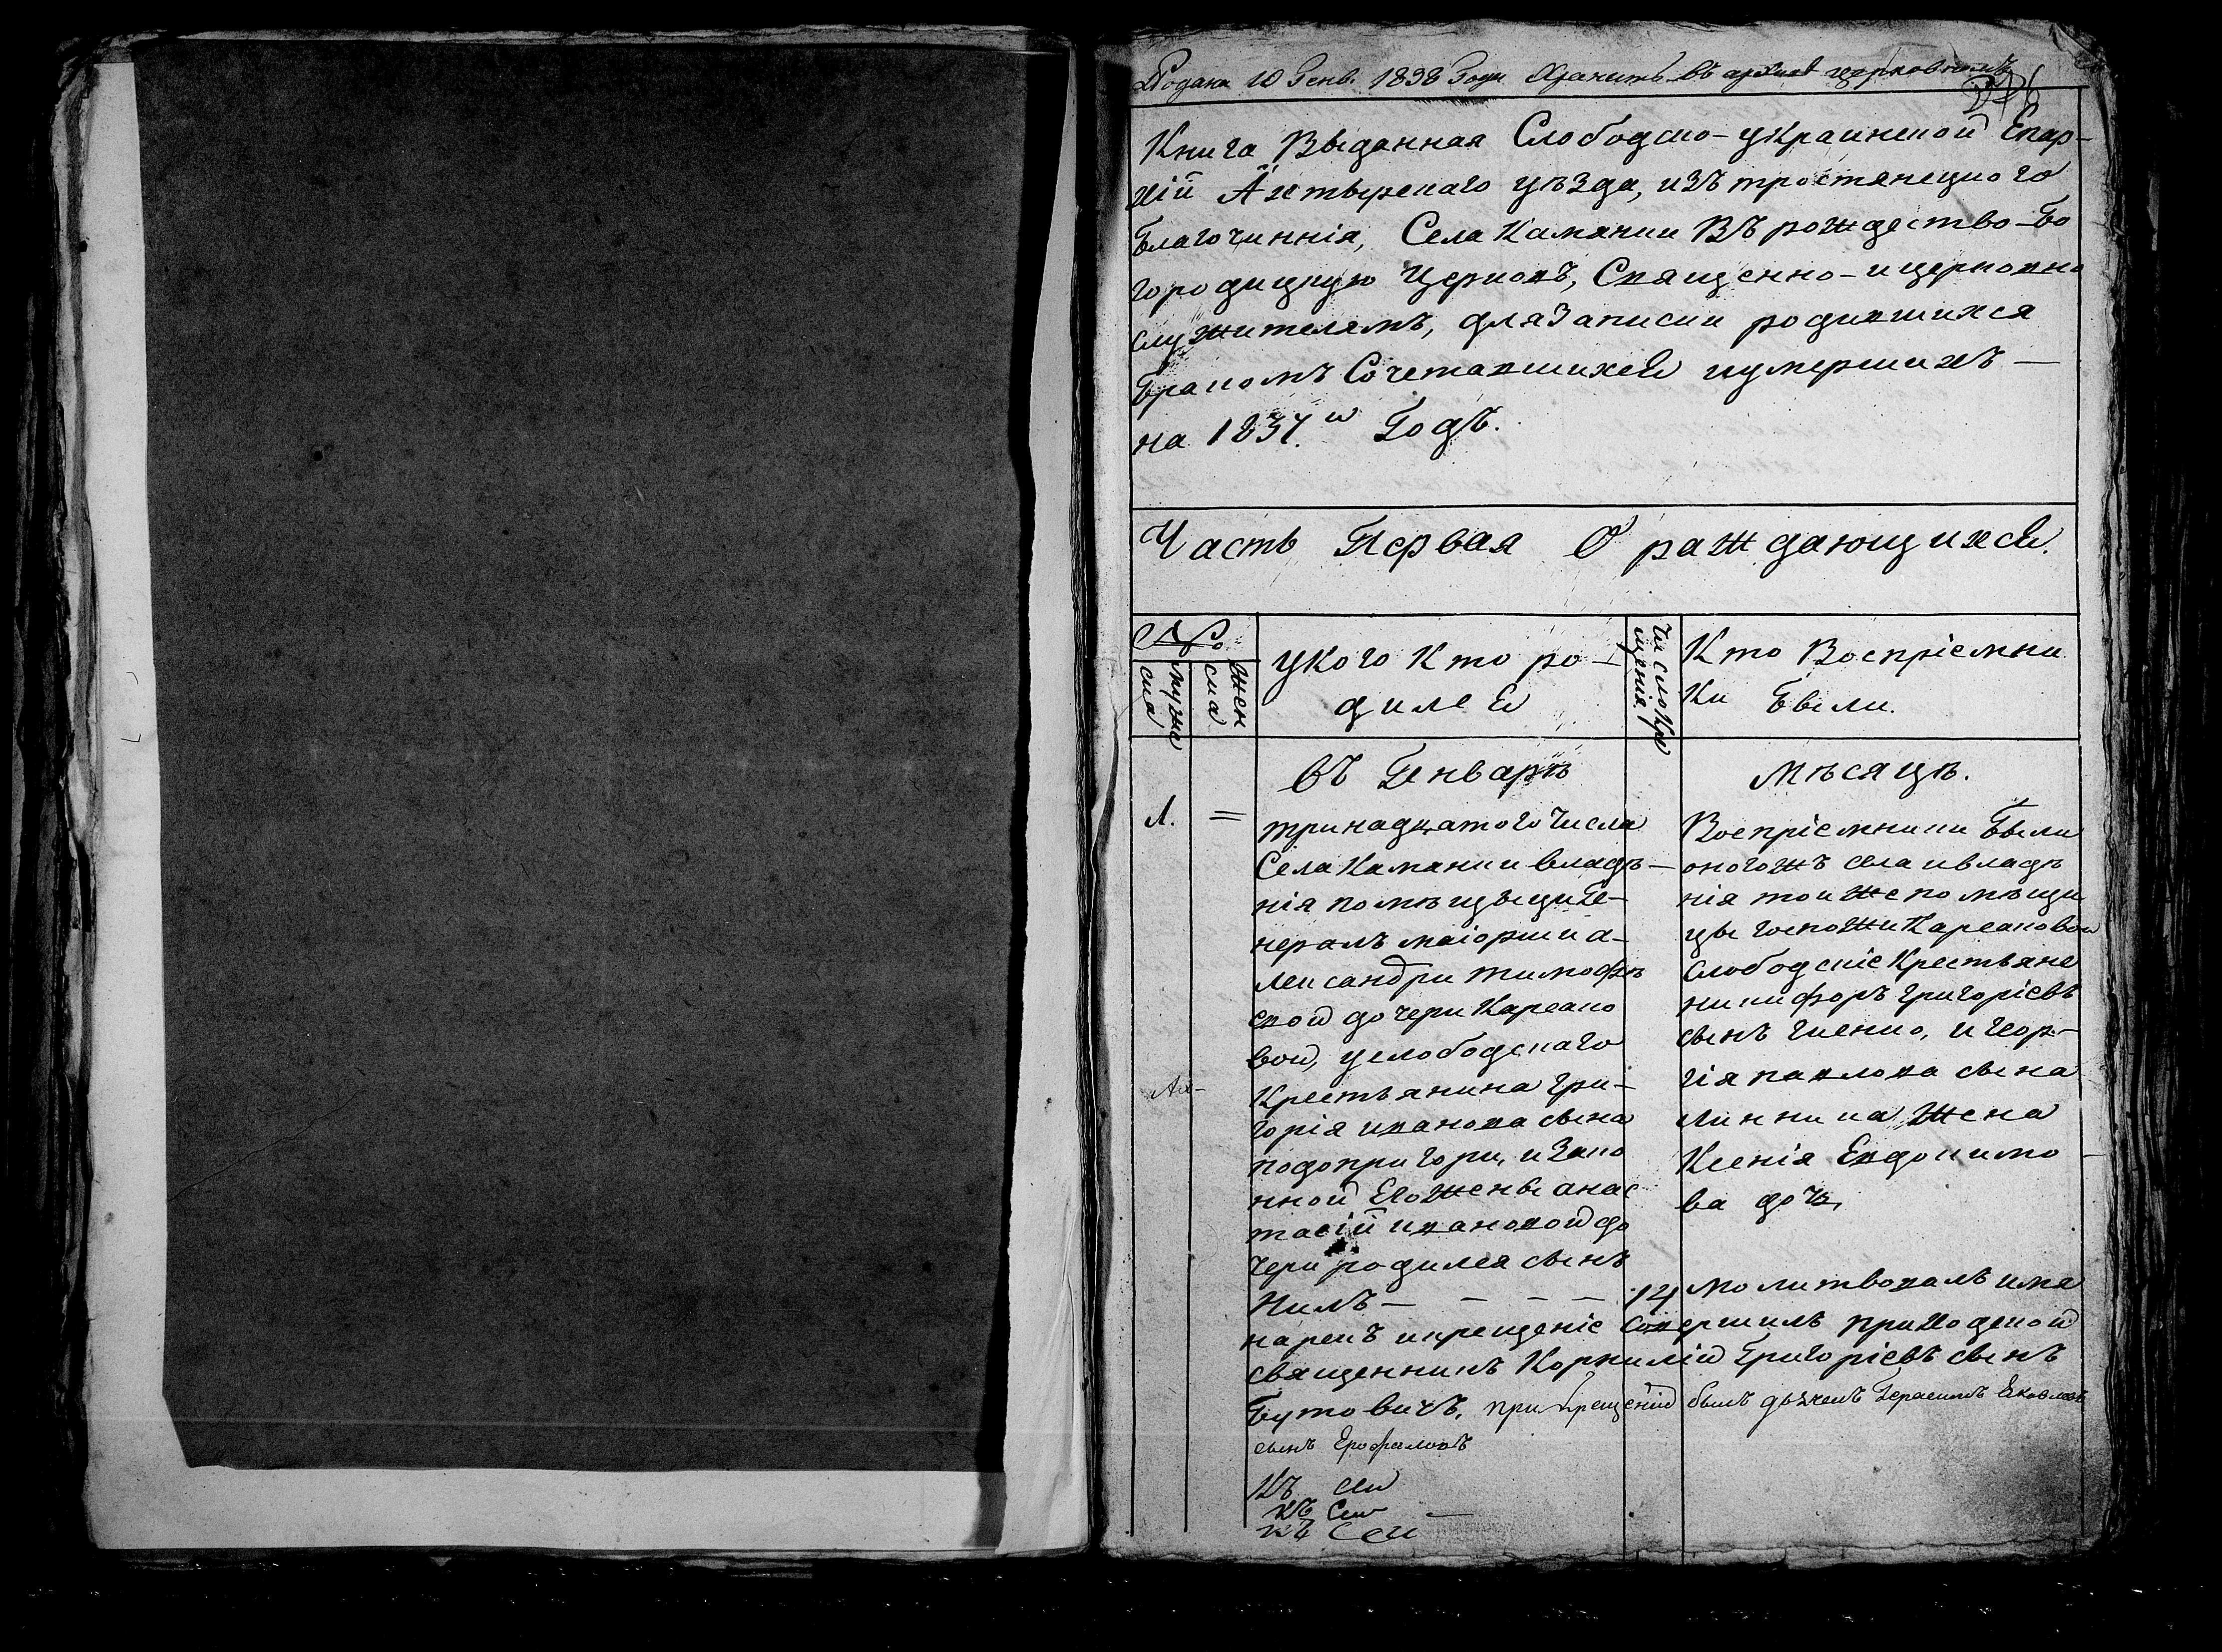 Подана 10 Генв. 1838 Года Хранить въ архиве церковномъ
Книга Выданная Слободско-украинской Епар-
хіи Ахтырскаго уѣзда, изъ тростянецкого
Благочиннія, Села Камянки Въ рождество-Бо
городицкую Церковъ, Священно-и церковно
служителямъ, для Записки родившихся
Бракомъ Сочетавшихся и умершихъ —
на 1837.й Годъ.
Часть Первая О раждающихся.
№
муже
ска
жен
ска
У кого Кто ро-
дился
Число Кре
щенія.
Кто Воспріемни
ки Были.
въ Генварѣ
мѣсяцѣ.
1. =
тринадцатого Числа
Села Камянки владѣ-
нія помѣщыцы Ге-
нералъ маіорши а-
лександри тимофѣ
евой дочери Карсано
вой, у слободскаго
Крестьянина гри-
горія иванова сына
подопригори, и Зако
нной Его жены анас
тасіи ивановой до
чери родился сынъ
Нилъ — — — —
14
Воспріемники Были
оногожъ села и владѣ
нія тои же помѣщи
цы госпожи Карсановой
слободскіе Крестьяне
никифоръ григоріевъ
сынъ гіенко, и геор-
гія павлова сына
линника жена
Ксенія Евдокимо
ва дочь,
молитвовалъ имя
нарекъ и крещеніе Совершилъ приходской
священникъ Корнилій Григоріевъ сынъ
Бутовичъ, при крещеніи былъ дьячекъ Герасимъ Яковлевъ
сынъ Ерофаловъ
Къ сей
къ Сей
къ Сей